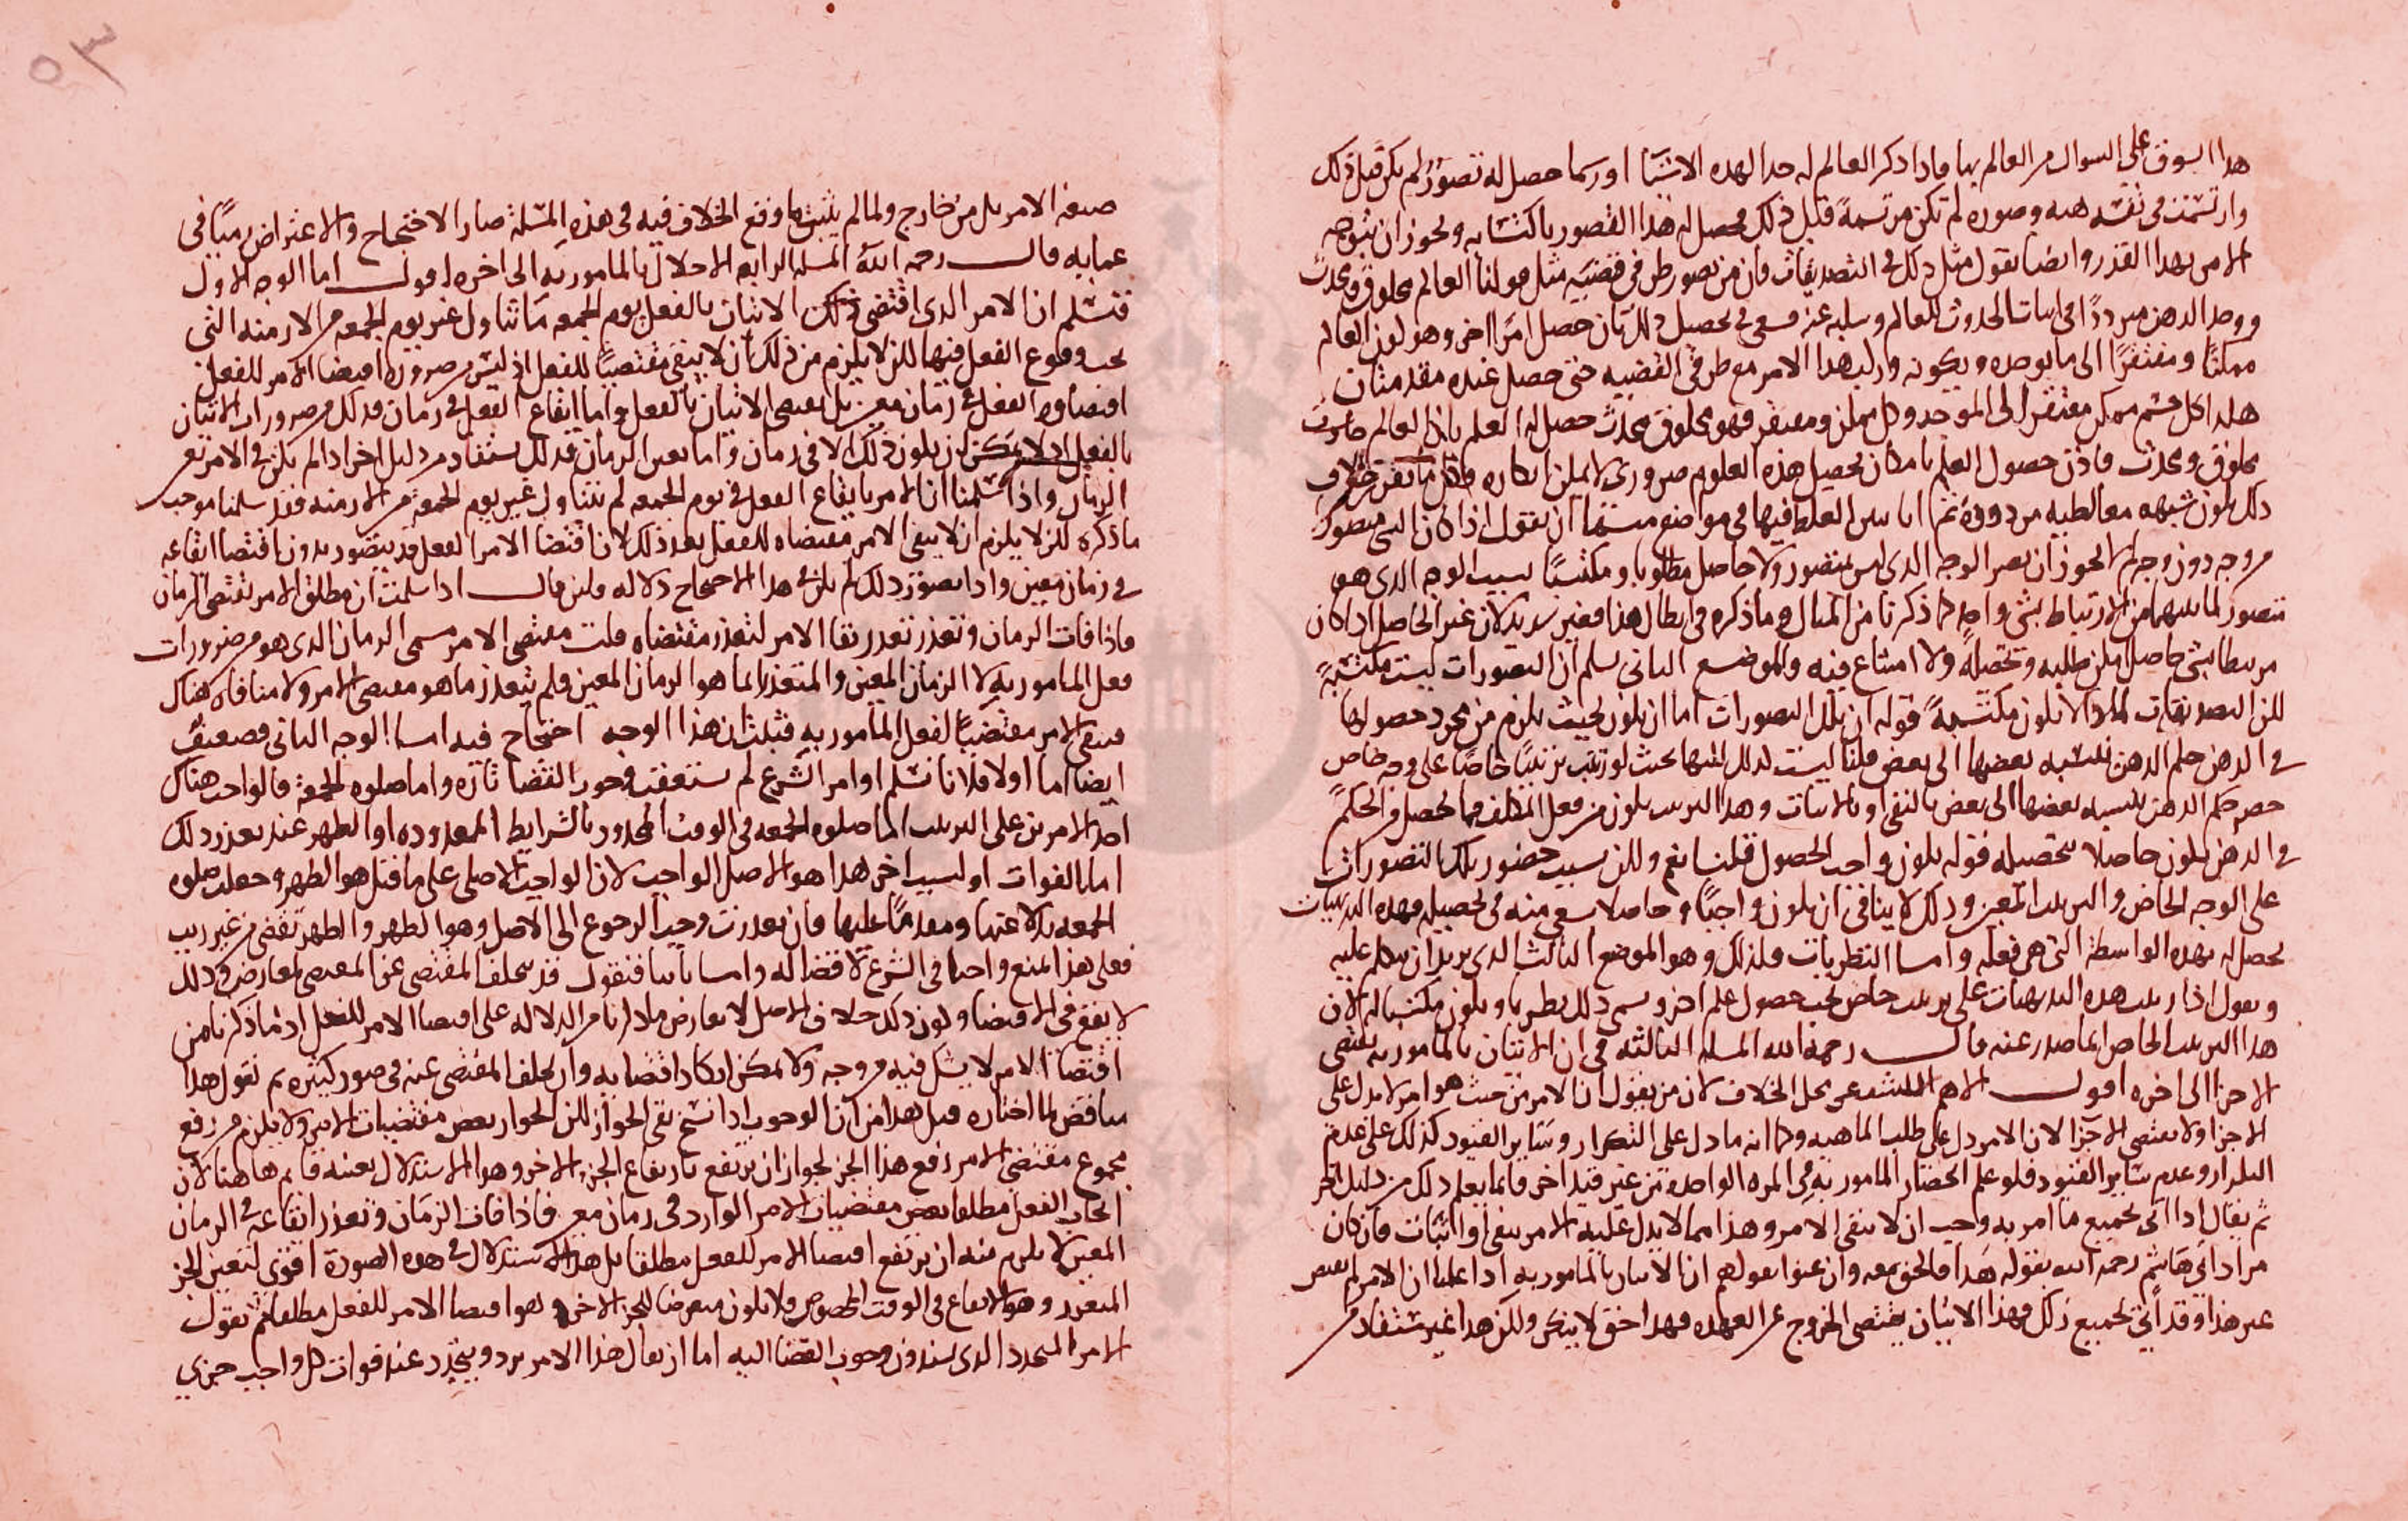 هذا السوق على السوال من العالم بها فاذا ذكر العالم له حدا لهذه الاشيا او رسما حصل له تصور لم يكن قبل ذلك
وارتسمت في نفسه هيه وصوره لم تكن مرتسمة قبل ذلك فحصل له هذا التصور باكتسابه ويجوز ان يتوجه
الامر بهذا القدر وايضا نقول مثل ذلك في التصديقات فان من تصور طرفي قضيه مثل قولنا العالم مخلوق ومحدث
ووجد الذهن مترددا في اثبات الحدوث للعالم وسلبه عنه فسعى في تحصيل ذلك بان حصل امرا اخر وهو كون العالم
ممكنا ومفتقرا الى ما يوجده ويكونه ورتب هذا الامر مع طرفي القضيه حتى حصل عنده مقدمتان
هكذا كل جسم ممكن مفتقر الى الموجد وكل ممكن ومفتقر فهو مخلوق محدث حصل له العلم بان العالم حادث
مخلوق ومحدث فاذن حصول العلم بامكان تحصيل هذه العلوم ضروري لا يمكن انكاره فكل ما يقرر خلاف
ذلك يكون شبهه مغالطيه مردودة ثم انا نبين الغلط فيها في مواضع منها ان نقول اذا كان الشي متصورا
من وجه دون وجه لم لا يجوز ان يصير الوجه الذي ليس بمتصور ولا حاصل مطلوبا ومكتسبا بسبب الوجه الذي هو
متصور لما بينهما من الارتباط بشي واحد كما ذكرنا من المثال وما ذكره في ابطال هذا فغير سديد لان غير الحاصل اذا كان
مرتبطا بشي حاصل يمكن طلبه وتحصيله ولا امتناع فيه والموضع الثاني نسلم ان التصورات ليست مكتسبة
لكن التصديقات لماذا لا تكون مكتسبة قوله ان تلك التصورات اما ان يكون بحيث يلزم من مجرد حصولها
في الذهن حكم الذهن بنسبه بعضها الى بعض قلنا ليست كذلك لكنها بحيث لو ترتبت ترتيبا خاصا على وجه خاص
حصر حكم الذهن بنسبه بعضها الى بعض بالنفي او بالاثبات وهذا الترتيب يكون من فعل المكلف فما يحصل من الحكم
في الذهن يكون حاصلا بتحصيله قوله يكون واجب الحصول قلنا نعم ولكن بسبب حضور تلك التصورات
على الوجه الخاص والترتيب المعين وذلك لا ينافي ان يكون واجبا وحاصلا بسعي منه في تحصيله فهذه البديهيات
تحصل له بهذه الواسطة التي هي فعله واما النظريات فكذلك وهو الموضع الثالث الذي نريد ان نتكلم عليه
ونقول اذا رتبت هذه البديهيات على ترتيب خاص يجب حصول علم اخر ويسمى ذلك نظريا ويكون مكتسبا له لان
هذا الترتيب الخاص انما صدر عنه قال رحمه الله المسله الثالثه في ان الاتيان بالمامور به يقتضي
الاجزا الى اخره اقول الاهم الكشف عن محل الخلاف لان من يقول ان الامر من حيث هو امر لا يدل على
الاجزا ولا يقتضي الاجزا لان الامر دل على طلب الماهيه وكما انه ما دل على التكرار وساير القيود كذلك على عدم
التكرار وعدم ساير القيود فلو علم انحصار المامور به في المره الواحده من غير قيد اخر فانما يعلم ذلك من دليل اخر
ثم يقال اذا اتى بجميع ما امر به وجب ان لا يبقى الامر وهذا مما لا يدل عليه الامر بنفي او اثبات فان كان
مراد ابي هاشم رحمه الله بقوله هذا فالحق معه وان عنوا بقولهم ان الاتيان بالمامور به اذا علمنا ان الامر لم يقتض
غير هذا وقد اتى بجميع ذلك فهذا الاتيان يقتضي الخروج عن العهده فهذا حق لا ينكر ولكن هذا غير مستفاد من
صيغه الامر بل من خارج ولما لم يثبت ما وقع الخلاف فيه في هذه المسلة صار الاحتجاج والاعتراض مبنيا في
عمايه قال رحمه الله المسله الرابعه الاخلال بالمامور به الى اخره اقول اما الوجه الاول
فنسلم ان الامر الذي اقتضى ذلك الاتيان بالفعل يوم الجمعه ما تناول غير يوم الجمعه من الازمنه التي
يجب وقوع الفعل فيها لكن لا يلزم من ذلك ان لا يبقى مقتضيا للفعل اذ ليس من ضرورة اقتضا الامر للفعل
اقتضاوه الفعل في زمان معين بل يقتضي الاتيان بالفعل واما ايقاع الفعل في زمان فذلك من ضرورات الاتيان
بالفعل اذ لا يمكن ان يكون ذلك الا في زمان واما تعين الزمان فذلك يستفاد من دليل اخر اذا لم يكن في الامر تعين
الزمان واذا سلمنا ان الامر بايقاع الفعل في يوم الجمعه لم يتناول غير يوم الجمعه من الازمنه فقد سلمنا موجب
ما ذكره لكن لا يلزم ان لا يبقى الامر مقتضاه للفعل بعد ذلك لان اقتضا الامر الفعل قد يتصور بدون اقتضا ايقاعه
في زمان معين واذا تصور ذلك لم يكن في هذا الاحتجاج دلاله ولئن قال اذا سلمت ان مطلق الامر يقتضي الزمان
فاذا فات الزمان وتعذر تعذر بقا الامر لتعذر مقتضاه قلت مقتضى الامر مسمى الزمان الذي هو من ضرورات
فعل المامور به لا الزمان المعين والمتعذر انما هو الزمان المعين فلم يتعذر ما هو مقتضى الامر ولا منافاه هناك
فبقي الامر مقتضيا لفعل المامور به فثبت ان هذا الوجه احتجاج فيه اما الوجه الثاني فضعيف
ايضا اما اولا فلانا نسلم اوامر الشرع لم تستعقب وجوب القضا تارة واما صلوه الجمعه فالواجب هناك
احد الامرين على الترتيب اما صلوه الجمعه في الوقت المحدود بالشرايط المعدوده او الظهر عند تعذر ذلك
اما بالفوات او لسبب اخر هذا هو الاصل الواجب لان الواجب الاصلي على ما قيل هو الظهر وجعلت صلوه
الجمعه بدلا عنها ومقدما عليها فان تعذرت وجب الرجوع الى الاصل وهو الظهر والظهر تقضى من غير ريب
فعلى هذا المنع واجبا في الشرع لا قضا له واما ثانيا فنقول قد يتخلف المقتضى عن المقتضي لمعارض وذلك
لا يقع في الاقتضا وكون ذلك خلاف الاصل لا يعارض ما ذكرنا من الدلاله على اقتضا الامر للفعل اذ ما ذكرنا من
اقتضا الامر لا يشك فيه من وجه ولا يمكن انكار اقتضايه وان تخلف المقتضى عنه في صور كثيره ثم نقول هذا
يناقض لما اختاره قبل هذا من ان الوجوب اذا نسخ بقي الجواز لكن الجواز بعض مقتضيات الامر ولا يلزم من رفع
مجموع مقتضى الامر رفع هذا الجز لجواز ان يرتفع بارتفاع الجز الاخر وهو الاستدلال بعينه قايم هاهنا لان
ايجاب الفعل مطلقا بعض مقتضيات الامر الوارد في زمان معين فاذا فات الزمان وتعذر ايقاعه في الزمان
المعين لا يلزم منه ان يرتفع اقتضا الامر للفعل مطلقا بل هذا الاستدلال في هذه الصورة اقوى لتعين الجز
المتعذر وهو الايقاع في الوقت المخصوص فلا يكون متعرضا للجز الاخر وهو اقتضا الامر للفعل مطلقا ثم نقول
الامر المتجدد الذي يسندون وجوب القضا اليه اما ان يقال هذا الامر يرد ويتجدد عند فوات كل واجب جزي